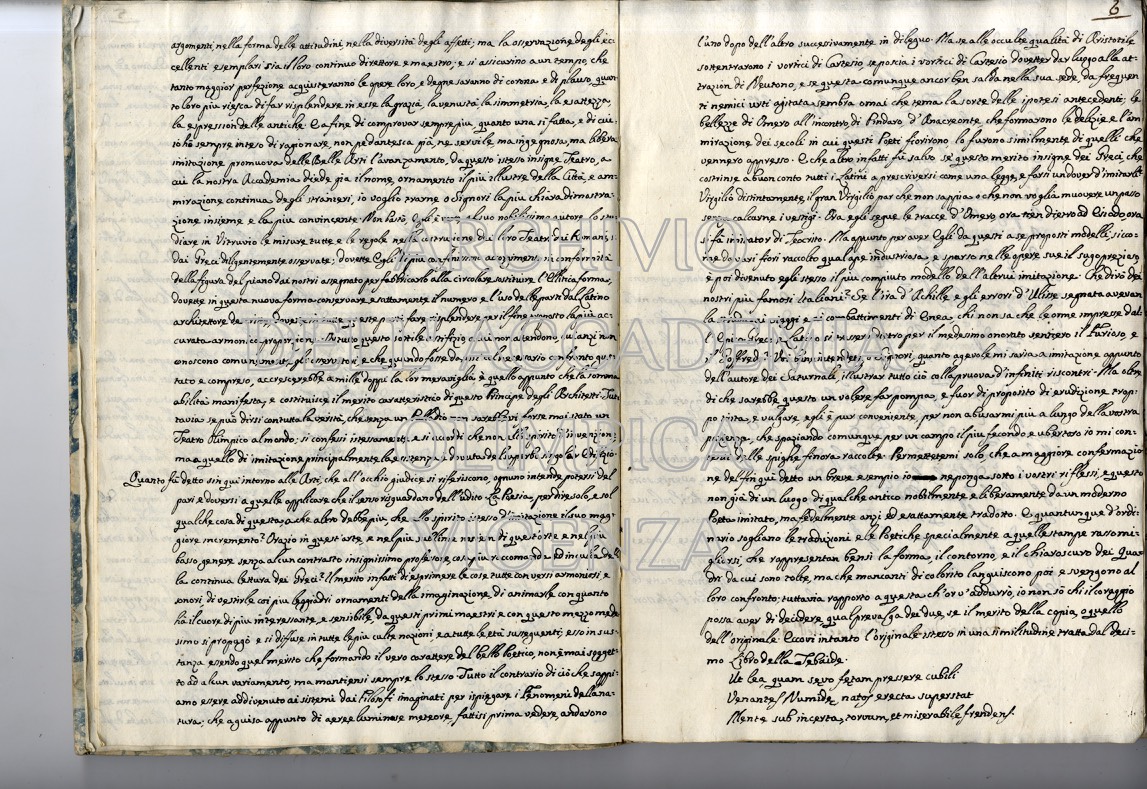 argomenti, nella forma delle attitudini, nella diversità degli affetti; ma la osservazione degli ec-
cellenti esemplari sia il loro continuo direttore e maestro; e si assicurino a un tempo, che
tanto maggior perfezione acquisteranno le opere loro, e degne saranno di corona e di plauso, quan-
to loro più riesca di far risplendere in esse la grazia, la venustà, la simmetria, la esattezza,
la espression delle antiche. E a fine di comprovar sempre più, quanto una sì fatta, e di cui
io ho sempre inteso di ragionare, non pedantesca già, ne servile, ma ingegnosa, ma libera
imitazione promuova delle Belle Arti l'avanzamento, da questo istesso insigne Teatro, a
cui la nostra Accademia diede già il nome, ornamento il più illustre della Città, e am-
mirazione continua degli stranieri, io voglio trarne o Signori la più chiara dimostra-
zione insieme e la più convincente. Non bastò, Egli è al suo nobilissimo autore lo stu-
diare in Vitruvio le misure tutte e le regole nella costruzione dei loro Teatri dai Romani, e
dai Greci diligentemente osservate; dovette Egli più
della figura del piano dai nostri assegnato per fabbricarlo alla circolare sostituir l'Elittica forma;
dovette in questa nuova forma conservare esattamente il numero e l'uso delle parti dal Latino
architettore per il fine la più ac-
curata armonica proporzion. questo sottile artifizio a cui non attendono, quanti non
conoscono comunemente, gli e che quando fosse da
tuto e compreso, accrescerebbe a mille doppi la lor meraviglia è quello appunto che la somma
abilità manifesta, e costituisce il merito caratteristico di questo Principe degli Architetti. Tut-
tavia se può dirsi con tutta la verità, che senza un Palladio non sarebbevi forse mai stato un
Teatro Olimpico al mondo; si confessi e si ricordi che non allo spirito d'invenzione,
ma a quello di imitazione principalmente la esistenza è dovuta
Quanto fù detto sin qui intorno alle Arti, che all'occhio giudice si riferiscono, ognuno intende potersi del
pari e doversi a quelle applicare che il senso risguardano dell'udito. La Poesia, per dire solo, e sol
qualche cosa di questa, a che altro debbe più, che allo spirito istesso d'imitazione il suo mag-
giore incremento? Orazio in quest'arte, e nel più sublime non men di quest'arte e nel più
basso genere senza alcun contrasto insignissimo professore, cosa più raccomanda ed inculca del-
la continua lettura dei Greci? Il merito infatti di esprimere le cose tutte con versi armoniosi, e
sonori, di vestirle coi più leggiadri ornamenti della imaginazione, di animarle con quanto
ha il cuore di più interessante, e sensibile, da questi primi maestri e con questo mezzo mede-
simo si propagò e si diffuse in tutte le più culte nazioni, e a tutte le età susseguenti; esso in sus-
tanza essendo quel merito che formando il vero carattere del bello Poetico, non è mai sogget-
to ad alcun variamento, ma mantiensi sempre lo stesso. Tutto il contrario di ciò che sappi-
amo essere addivenuto ai sistemi dai Filosofi imaginati per ispiegare i Fenomeni della na-
tura; che a guisa appunto di aeree luminose meteore, fattisi prima vedere, andarono
6
l'uno dopo dell'altro successivamente in dileguo. Ma se alle occulte qualità di Aristotile
sottentrarono i vortici di Cartesio, se poscia i vortici di Cartesio dovetter dar luogo alla at-
trazion di Neutono, e se questa comunque ancor ben salda nella sua sede, da frequen-
ti nemici urti agitata sembra omai che tema la sorte delle ipotesi antecedenti; le
bellezze di Omero all'incontro, di Pindaro d'Anacreonte che formarono le delizie e l'am-
mirazione dei secoli in cui questi Poeti fiorirono lo furono similmente di quelli che
vennero appresso. E che altro infatti fù salvo se questo merito insigne dei Greci, che
costrinse a buon conto tutti i Latini a prescriversi come una legge, e farsi un dover d'imitarli?
Virgilio distintamente, il gran Virgilio par che non sappia o che non voglia muovere un passo
senza calcarne i vestigi. Ora egli segue le tracce d'Omero, ora tien dietro ad Esiodo, ora
si fa imitator di Teocrito. Ma appunto per aver Egli da questi a se proposti modelli, sicco-
me da vari fiori raccolto qual ape industriosa, e sparso nelle opere sue il sugo prezioso
è poi divenuto egli stesso il più compiuto modello dell'altrui imitazione. Che dirò dei
nostri più famosi Italiani? Se l'ira d'Achille e gli errori d'Ulisse segnata avevan
la viaggi e ai combattimenti di Enea, chi non sa che le orme impresse dal-
l'Epico Greco, e Latino si tennero dietro per il medesimo onorato sentiero il Furioso, e
il Goffredo? Voi ben intendete, o Signori, quanto agevole mi saria a imitazione appunto
dell'autore dei Saturnali, illustrar tutto ciò colla pruova d'infiniti riscontri. Ma oltre
di che sarebbe questo un volere far pompa, e fuor di proposito di erudizione trop-
po trita, e vulgare, egli è pur conveniente, per non abusarmi più a lungo della vostra
pazienza, che spaziando comunque per un campo il più fecondo e ubertoso io mi con-
tenti delle spighe finora raccolte. Permettetemi solo, che a maggiore confermazio-
ne del fin qui detto un breve esempio io ne ponga sotto i vostri riflessi, e questo
non già di un luogo di qualche antico nobilmente e liberamente da un moderno
Poeta imitato, ma fedelmente anzi ed esattamente tradotto. E quantunque d'ordi-
nario sogliano le traduzioni e le Poetiche specialmente a quelle stampe rassomi-
gliarsi, che rappresentan bensì la forma, il contorno, e il chiaroscuro dei Qua-
dri da cui sono tolte, ma che mancanti di colorito languiscono poi e svengono al
loro confronto; tuttavia rapporto a questa ch'or v'addurrò, io non sò chi il coraggio
possa aver di decidere qual prevalga dei due, se il merito della copia, o quello
dell'originale. Eccovi intanto l'originale istesso in una similitudine tratta dal Deci-
mo Libro della Tebaide.
Ut lea quam sævo fœtam pressere cubili
Venantes Numidæ, natos erecta superstat
Mente sub incerta, torvum, et miserabile frendens.
ARCHIVIO
DELL'ACCADEMIA
OLIMPICA
VICENZA